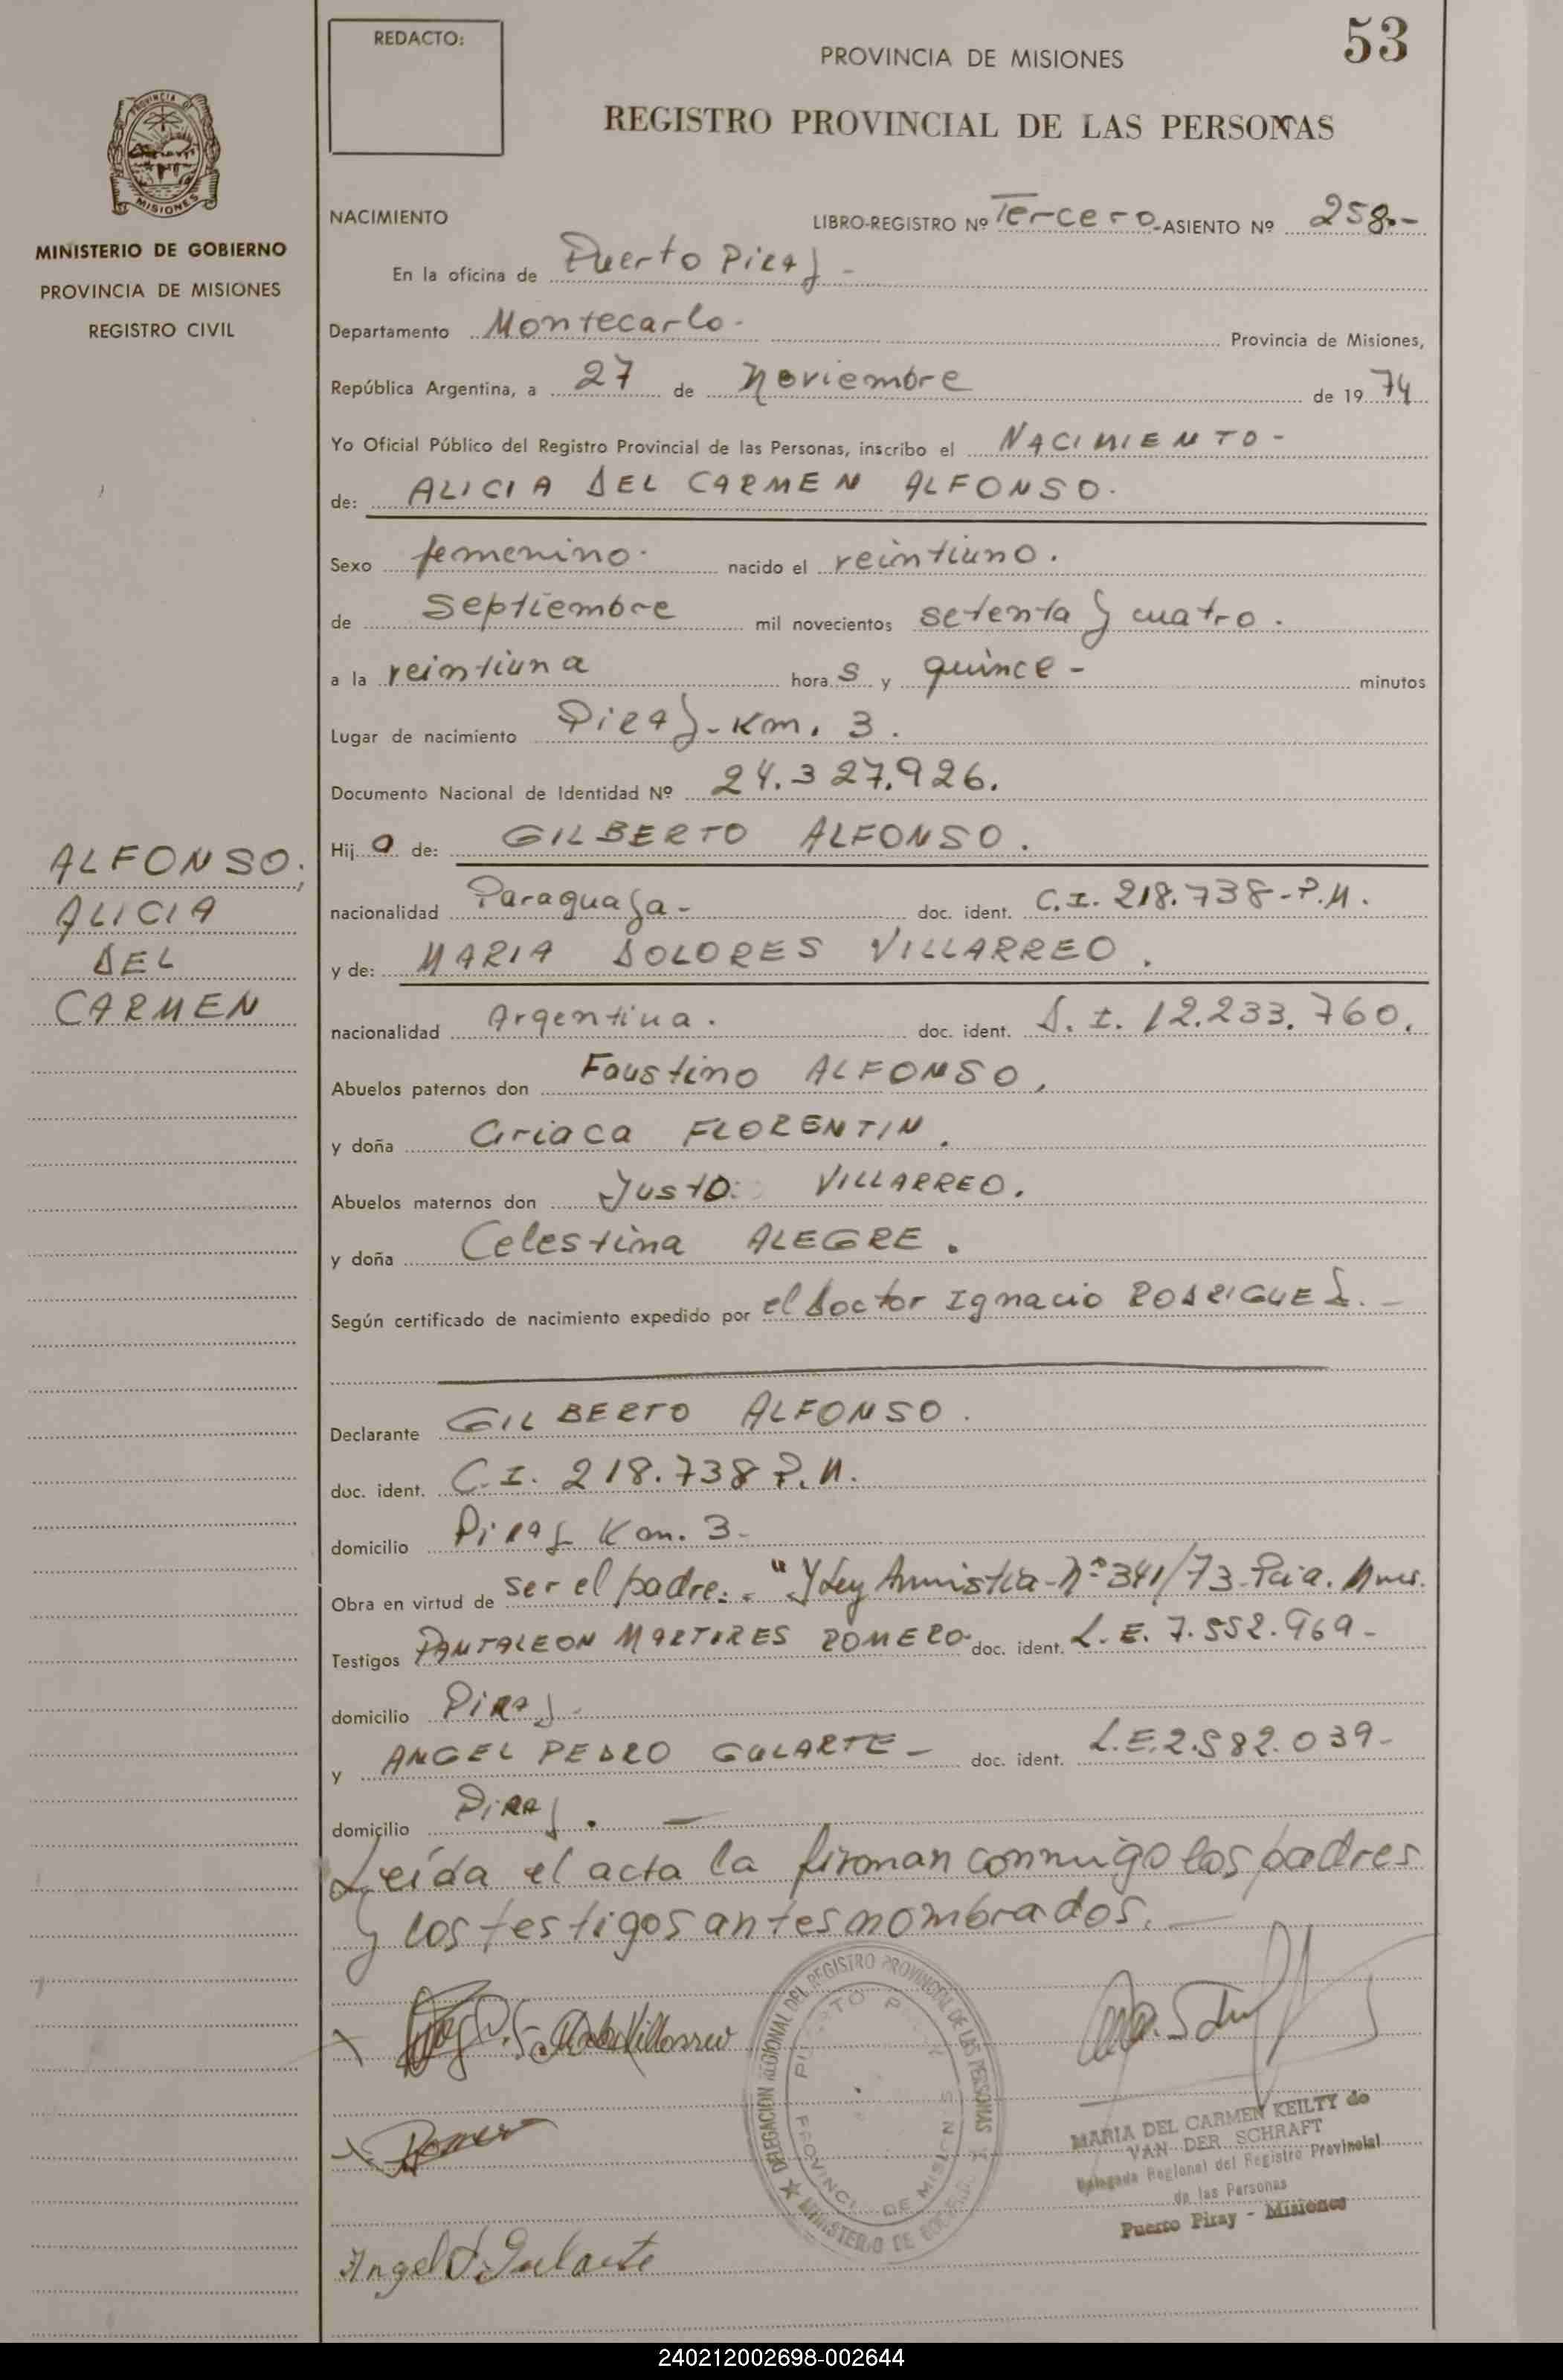 REDACTO:
53
PROVINCIA DE MISIONES
REGISTRO PROVINCIAL DE LAS PERSONAS
PROVINCIA
MISIONES
MINISTERIO DE GOBIERNO
PROVINCIA DE MISIONES
REGISTRO CIVIL
NACIMIENTO
LIBRO-REGISTRO Nº Tercero-ASIENTO Nº 258.-
En la oficina de Puerto Piray -
Departamento Montecarlo- Provincia de Misiones,
República Argentina, a 27 de Noviembre de 1974
Yo Oficial Público del Registro Provincial de las Personas, inscribo el NACIMIENTO-
de: ALICIA DEL CARMEN ALFONSO.
Sexo femenino. nacido el veintiuno.
de Septiembre mil novecientos setenta y cuatro.
a la veintiuna hora s y quince- minutos
Lugar de nacimiento Piray-Km. 3.
Documento Nacional de Identidad Nº 24.327.926.
Hij a de: GILBERTO ALFONSO.
nacionalidad Paraguaya- doc. ident. C.I. 218.738-P.M.
y de: MARIA DOLORES VILLARREO.
nacionalidad Argentina. doc. ident. D.I. 12.233.760.
Abuelos paternos don Faustino ALFONSO,
y doña Ciriaca FLORENTIN.
Abuelos maternos don Justo VILLARREO.
y doña Celestina ALEGRE.
Según certificado de nacimiento expedido por el Doctor Ignacio RODRIGUEZ.-
Declarante GILBERTO ALFONSO.
doc. ident. C.I. 218.738 P.M.
domicilio Piray Km. 3-
Obra en virtud de ser el padre.- "Y Ley Amnistia-Nº 341/73-Pcia. Mnes.
Testigos PANTALEON MARTIRES ROMERO- doc. ident. L.E. 7.552.969-
domicilio Piray-
y ANGEL PEDRO GULARTE- doc. ident. L.E.2.582.039-
domicilio Piray. -
Leída el acta la firman conmigo los padres
y los testigos antes nombrados.-
ALFONSO;
ALICIA
DEL
CARMEN
Villarreo
Romero
Angel P. Gularte
DELEGACION REGIONAL DEL REGISTRO PROVINCIAL DE LAS PERSONAS
MINISTERIO DE
PROVINCIA DE MISIONES
MARIA DEL CARMEN KEILTY de
VAN DER SCHRAFT
Delegada Regional del Registro Provincial
de las Personas
Puerto Piray - Misiones
240212002698-002644